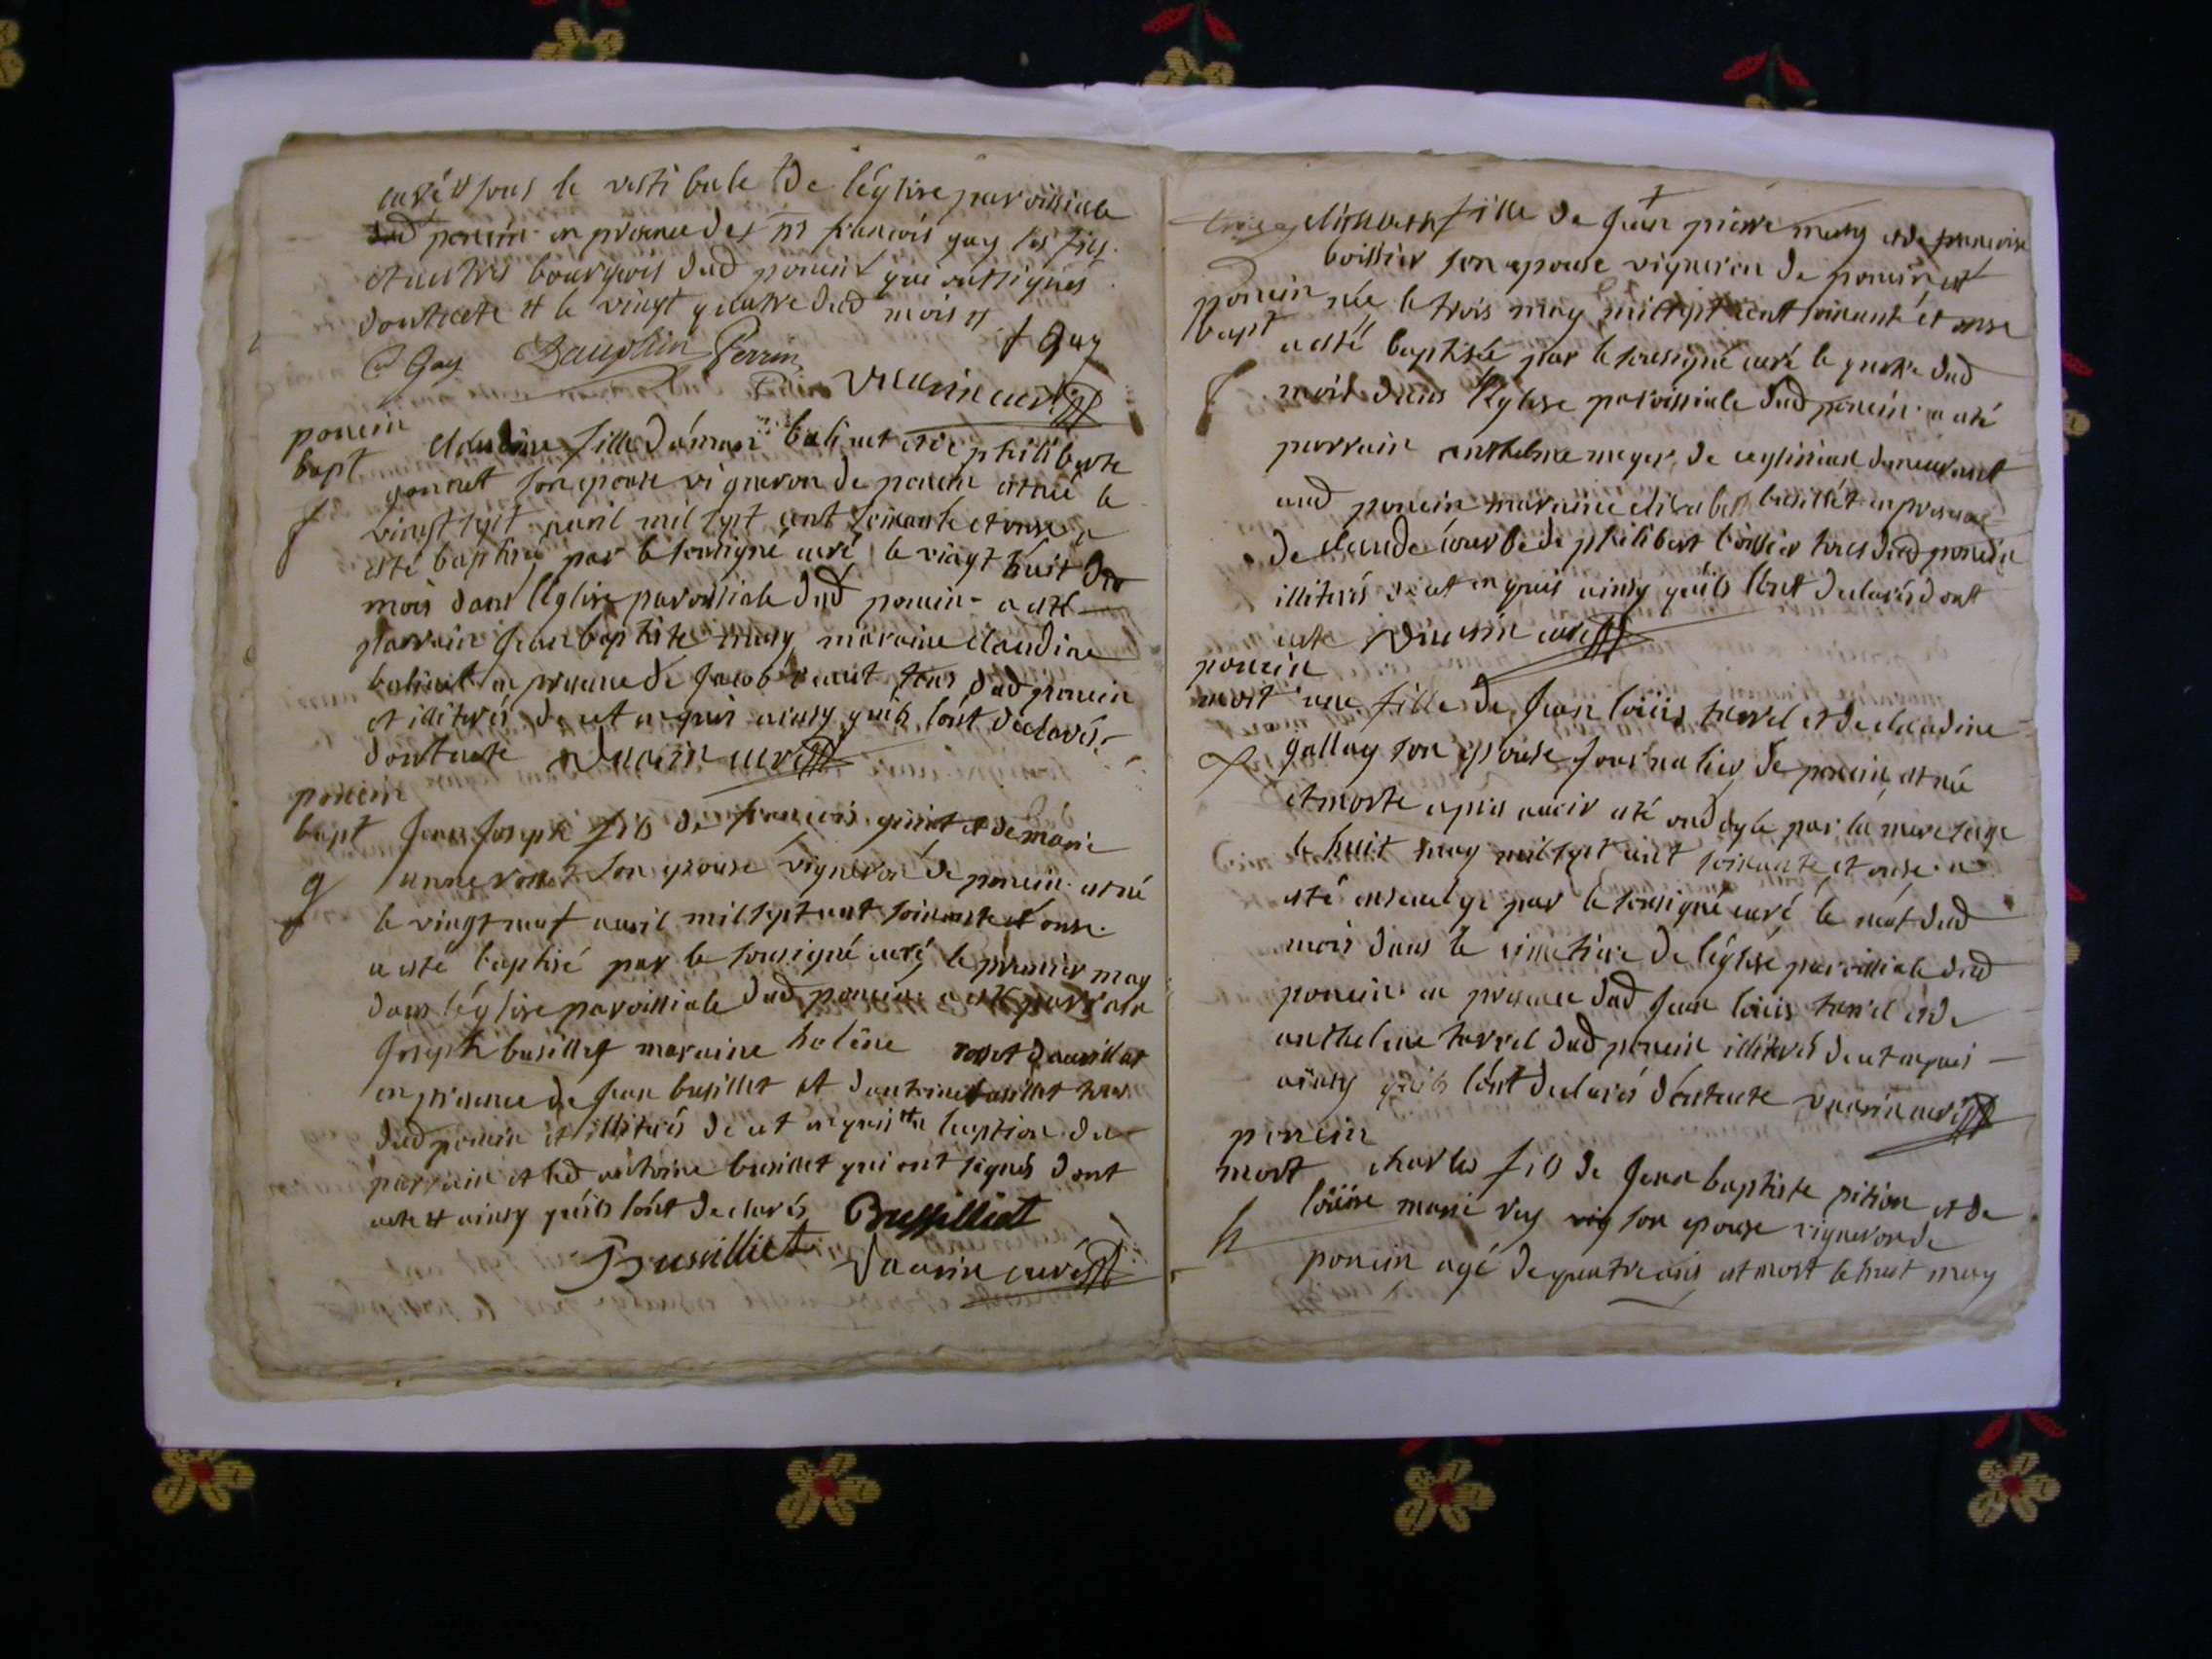 curé et sous le vesti bule de l'églize parroissiale
dud poncin en presence des françois guy
et autres bourgeois dud poncin qui ont signés
dont acte et le vingt quatre dud mois
Guy Dauphin Perrin f Guy
curé
poncin
bapt Claudine fille balivet et de philiberte
son epouse vigneron de poncin est née le
f vingt sept avril mil sept cent soixante et onze a
esté baptisée par le sousigné curé le vingt huit dud
mois dans l'églize paroissiale dud poncin a esté
parrain Jean baptiste musy maraine claudine
balivet en presence de Jacob tous dud poncin
et illiterés de cet enquis ainsy qu'ils l'ont declarés
dont acte curé
poncin
bapt Jean Joseph fils de françois et de marie
g anne rosset son epouse vigneron de poncin est né
le vingt neuf avril mil sept cent soixante et onze
a esté baptisé par le sousigné curé le premier may
dans l'églize paroissiale dud poncin a esté parrain
Joseph busillet maraine helêne rosset
en presence de Jean busillet et d'antoine busillet tous
dud poncin et illiterés de cet enquis a l'exception du
parrain et dud antoine busillet qui ont signés dont
acte et ainsy qu'ils l'ont declarés Bussilliet
Bussilliet curé
elisabeth fille de Jean pierre musy et de françoise
boissier son epouse vigneron de poncin est
poncin née le trois may mil sept cent soixante et onze
bapt a esté baptisée par le sousigné curé le quatre dud
f mois dans l'églize paroissiale dud poncin a eté
parrain anthelme meyer de demeurant
aud poncin maraine elisabet busillet en presence
de claude courbe de philibert boissier tous dud poncin
illiterés de cet enquis ainsy qu'ils l'ont declarés dont
acte curé
poncin
mort une fille de Jean loüis tarrel et de claudine
gallay son epouse Journalier de poncin est née
et morte apres avoir eté ondoyée par la mere sage
le huit may mil sept cent soixante et onze a
esté ensevelye par le sousigné curé le neuf dud
mois dans le cimetiere de l'églize paroissiale dud
poncin en presence dud Jean loüis tarrel et de
anthelme tarrel dud poncin illiterés de cet enquis
ainsy qu'ils l'ont declarés dont acte curé
poncin
mort charles fils de Jean baptiste pition et de
h loüise marie rey son epouse vigneron de
poncin agé de quatre ans est mort le huit may